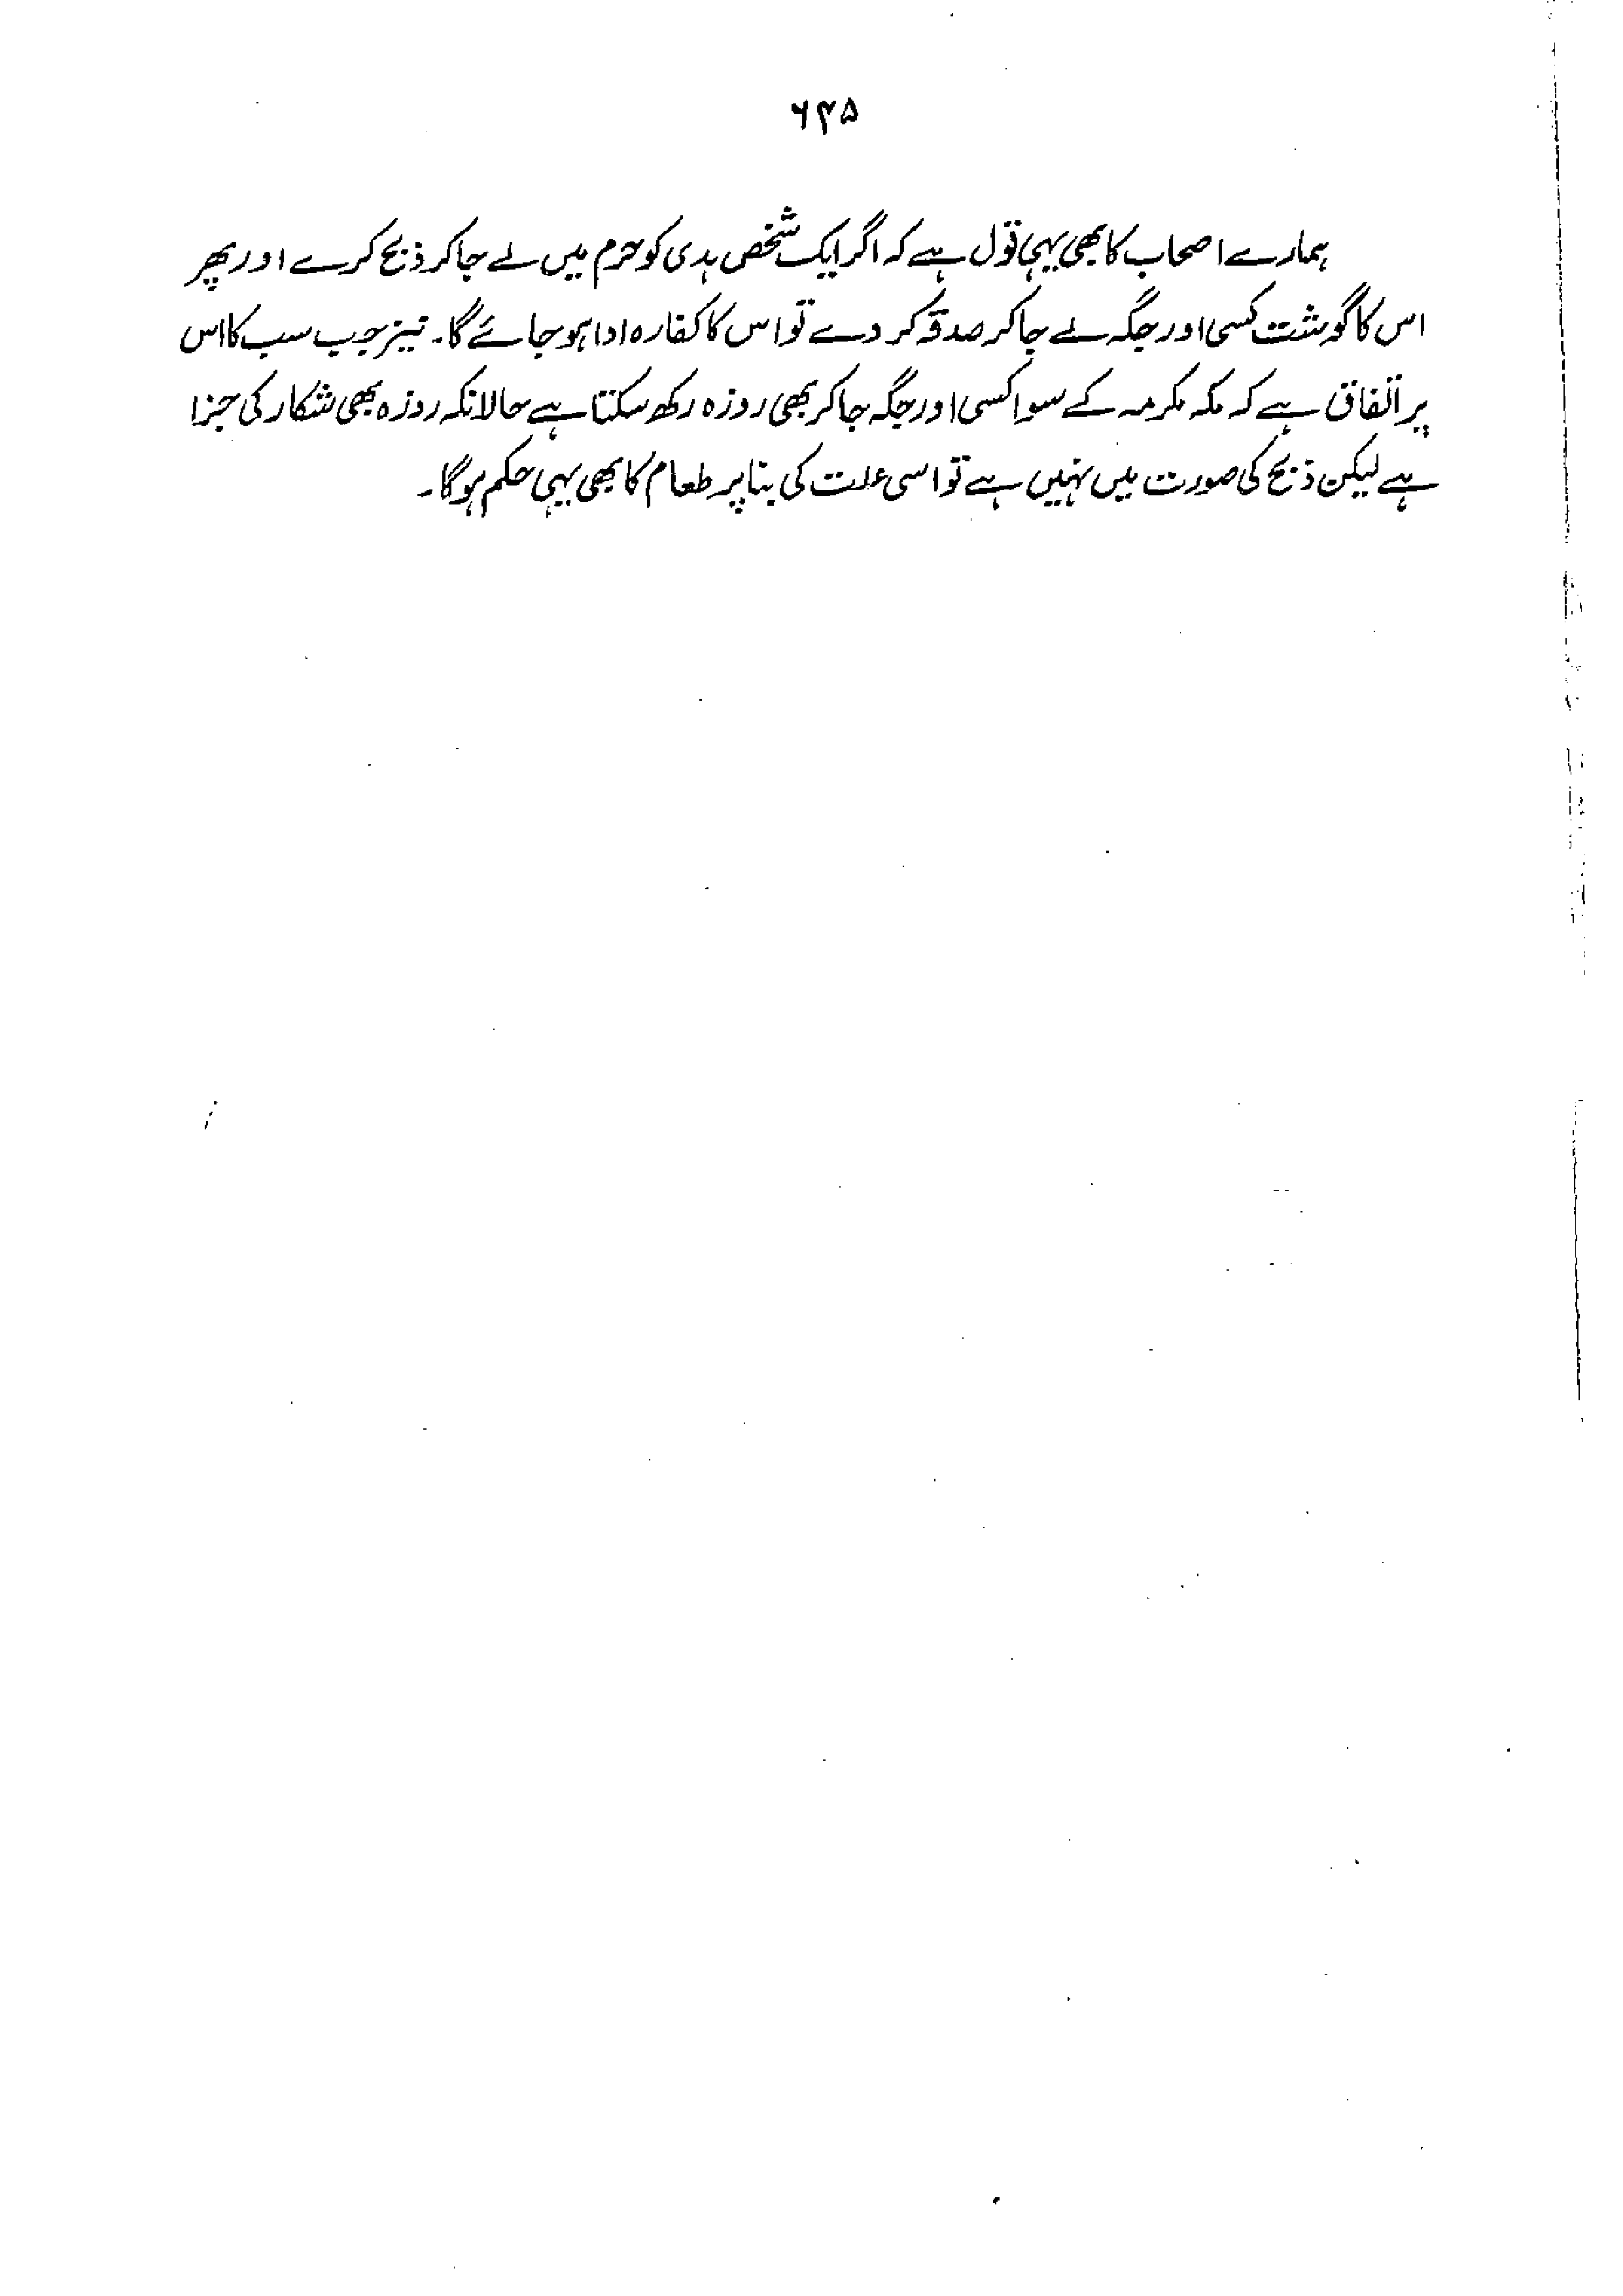 ۶۴۵
ہمارے اصحاب کا بھی یہی قول ہے کہ اگر ایک شخص ہدی کو حرم میں لے جاکر ذبح کرے اور پھر
اس کا گوشت کسی اور جگہ لے جا کر صدقہ کر دے تو اس کا کفارہ ادا ہو جائے گا۔ نیز جب سب کا اس
پر اتفاق ہے کہ مکہ مکرمہ کے سوا کسی اور جگہ جا کر بھی روزہ رکھ سکتا ہے حالانکہ روزہ بھی شکار کی جزا
ہے لیکن ذبح کی صورت میں نہیں ہے تو اسی علت کی بنا پر طعام کا بھی یہی حکم ہوگا۔